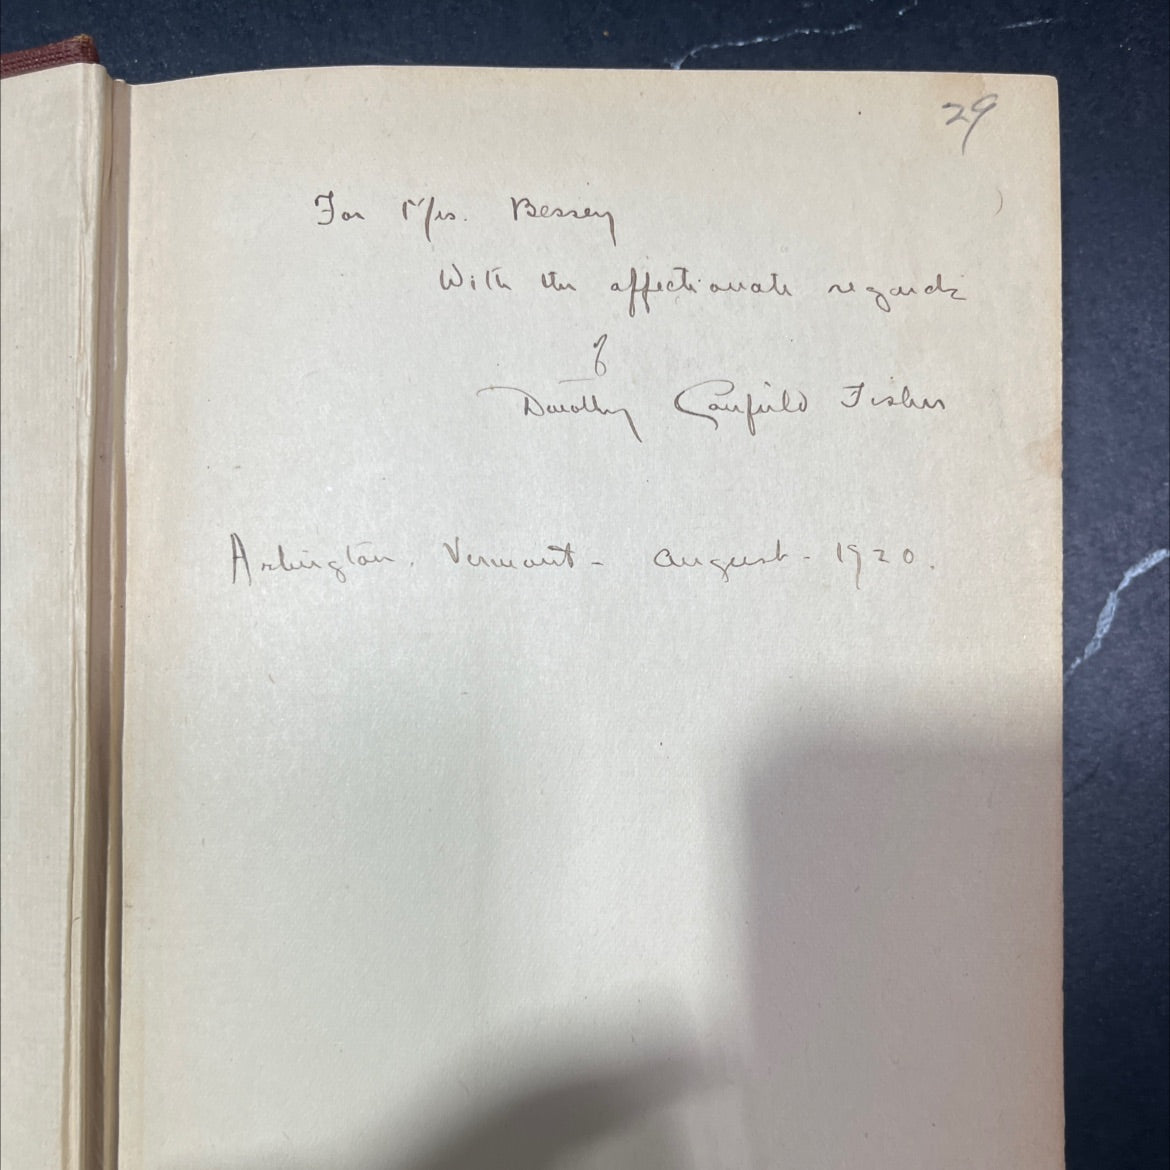 29
For Mrs. Bessey
With the affectionate regards
of
Dorothy Canfield Fisher
Arlington, Vermont - August - 1920.